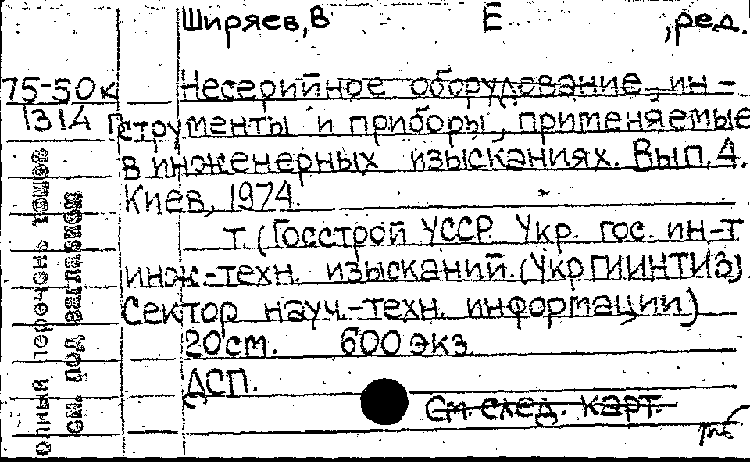 Ширяев, В Е , ред.
75-50к Несерийное оборудование, ин-
1314 струменты и приборы, применяемые
в инженерных изысканиях. Вып. 4.
Киев, 1974.
т. (Госстрой УССР. Укр. гос. ин-т
инж.-техн. изысканий. (УкрГИИНТИЗ)
Сектор науч.-техн. информации)
20см. 600 экз.
ДСП.
См след. карт.
полный перечень томов
см. под заглавием